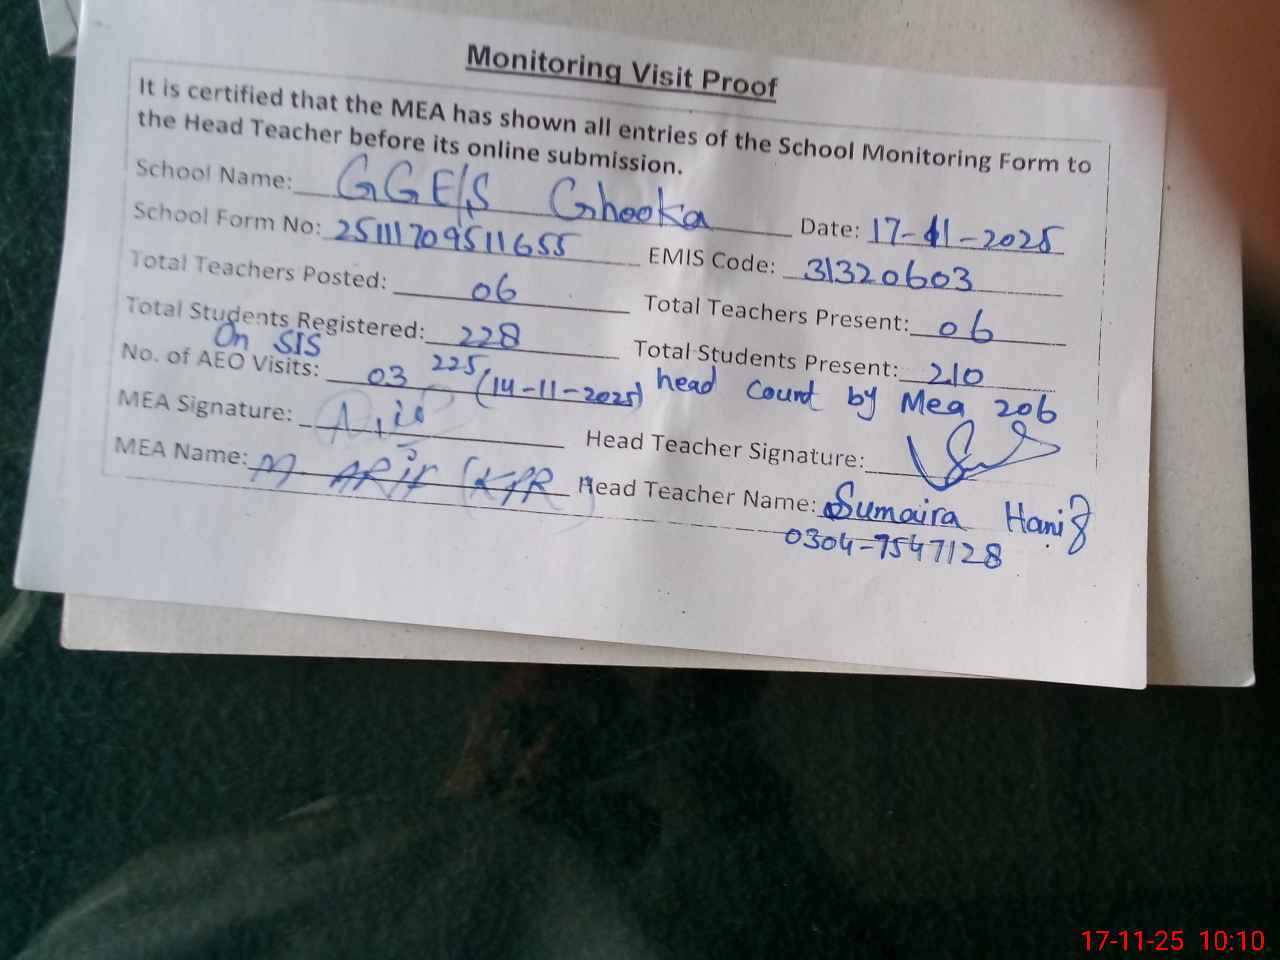 Monitoring Visit Proof
It is certified that the MEA has shown all entries of the School Monitoring Form to
the Head Teacher before its online submission.
School Name: GGE/S Ghooka Date: 17-11-2025
School Form No: 25111709511655 EMIS Code: 31320603
Total Teachers Posted: 06 Total Teachers Present: 06
Total Students Registered: 228 Total Students Present: 210
On SIS 225
No. of AEO Visits: 03 (14-11-2025) head count by Mea 206
MEA Signature: Head Teacher Signature:
MEA Name: M. ARIF Head Teacher Name: Sumaira Hanif
0304-7547128
17-11-25 10:10